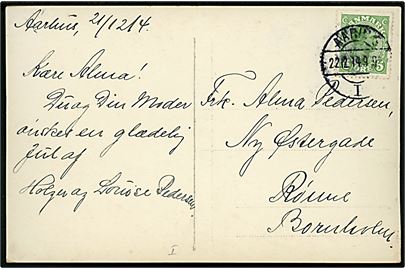 Aarhus, 21/12 14.
Kære Alma!
Du og Din Moder
ønskes en glædelig
Jul af
Holger og Louise Pedersen.
I
DANMARK
5
AARHUS
22.12.14.
I
Frk. Alma Pedersen,
Ny Østergade
Rønne
Bornholm.